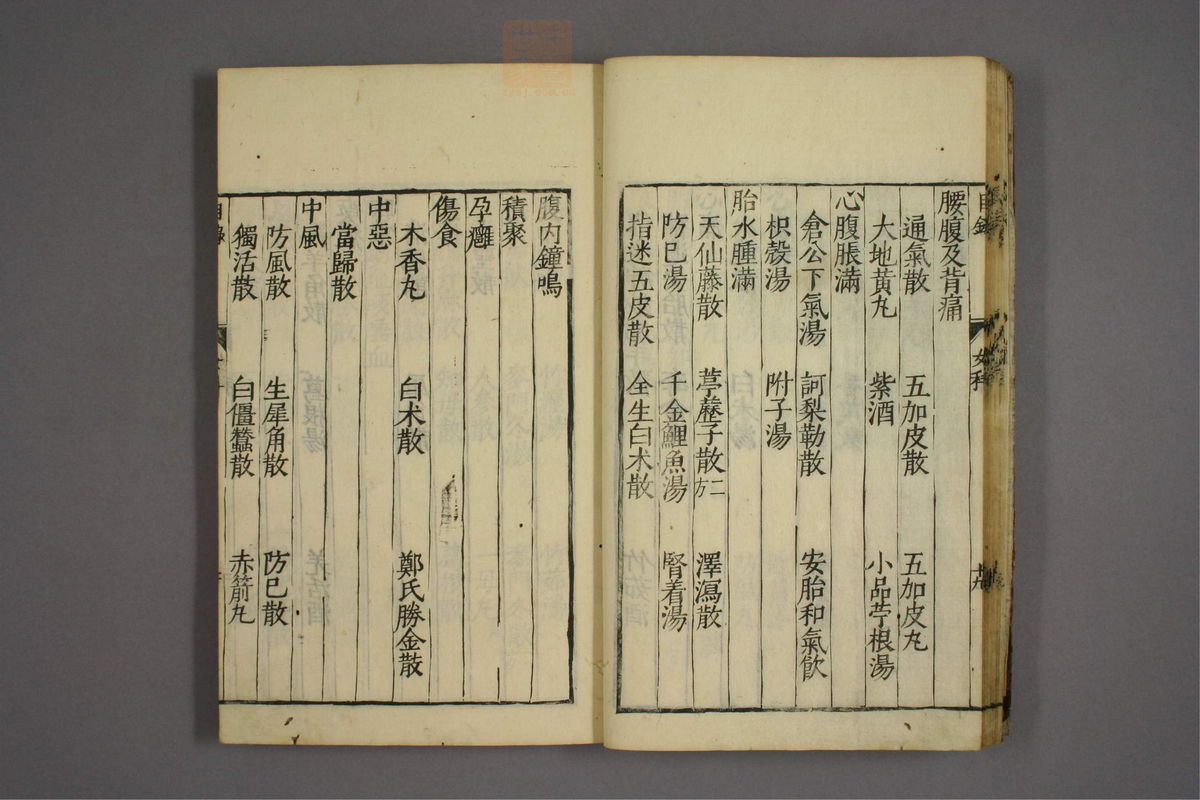 腰腹及背痛
通氣散 五加皮散 五加皮丸
大地黃丸 紫酒 小品苧根湯
心腹脹滿
倉公下氣湯 訶梨勒散 安胎和氣飲
枳殼湯 附子湯
胎水腫滿
天仙藤散 葶藶子散二方 澤瀉散
防已湯 千金鯉魚湯 腎着湯
指迷五皮散 全生白朮散
腹内鐘鳴
積聚
孕癰
傷食
木香丸 白朮散 鄭氏勝金散
中惡
當歸散
中風
防風散 生犀角散 防已散
獨活散 白殭蠶散 赤箭丸
目錄 女科